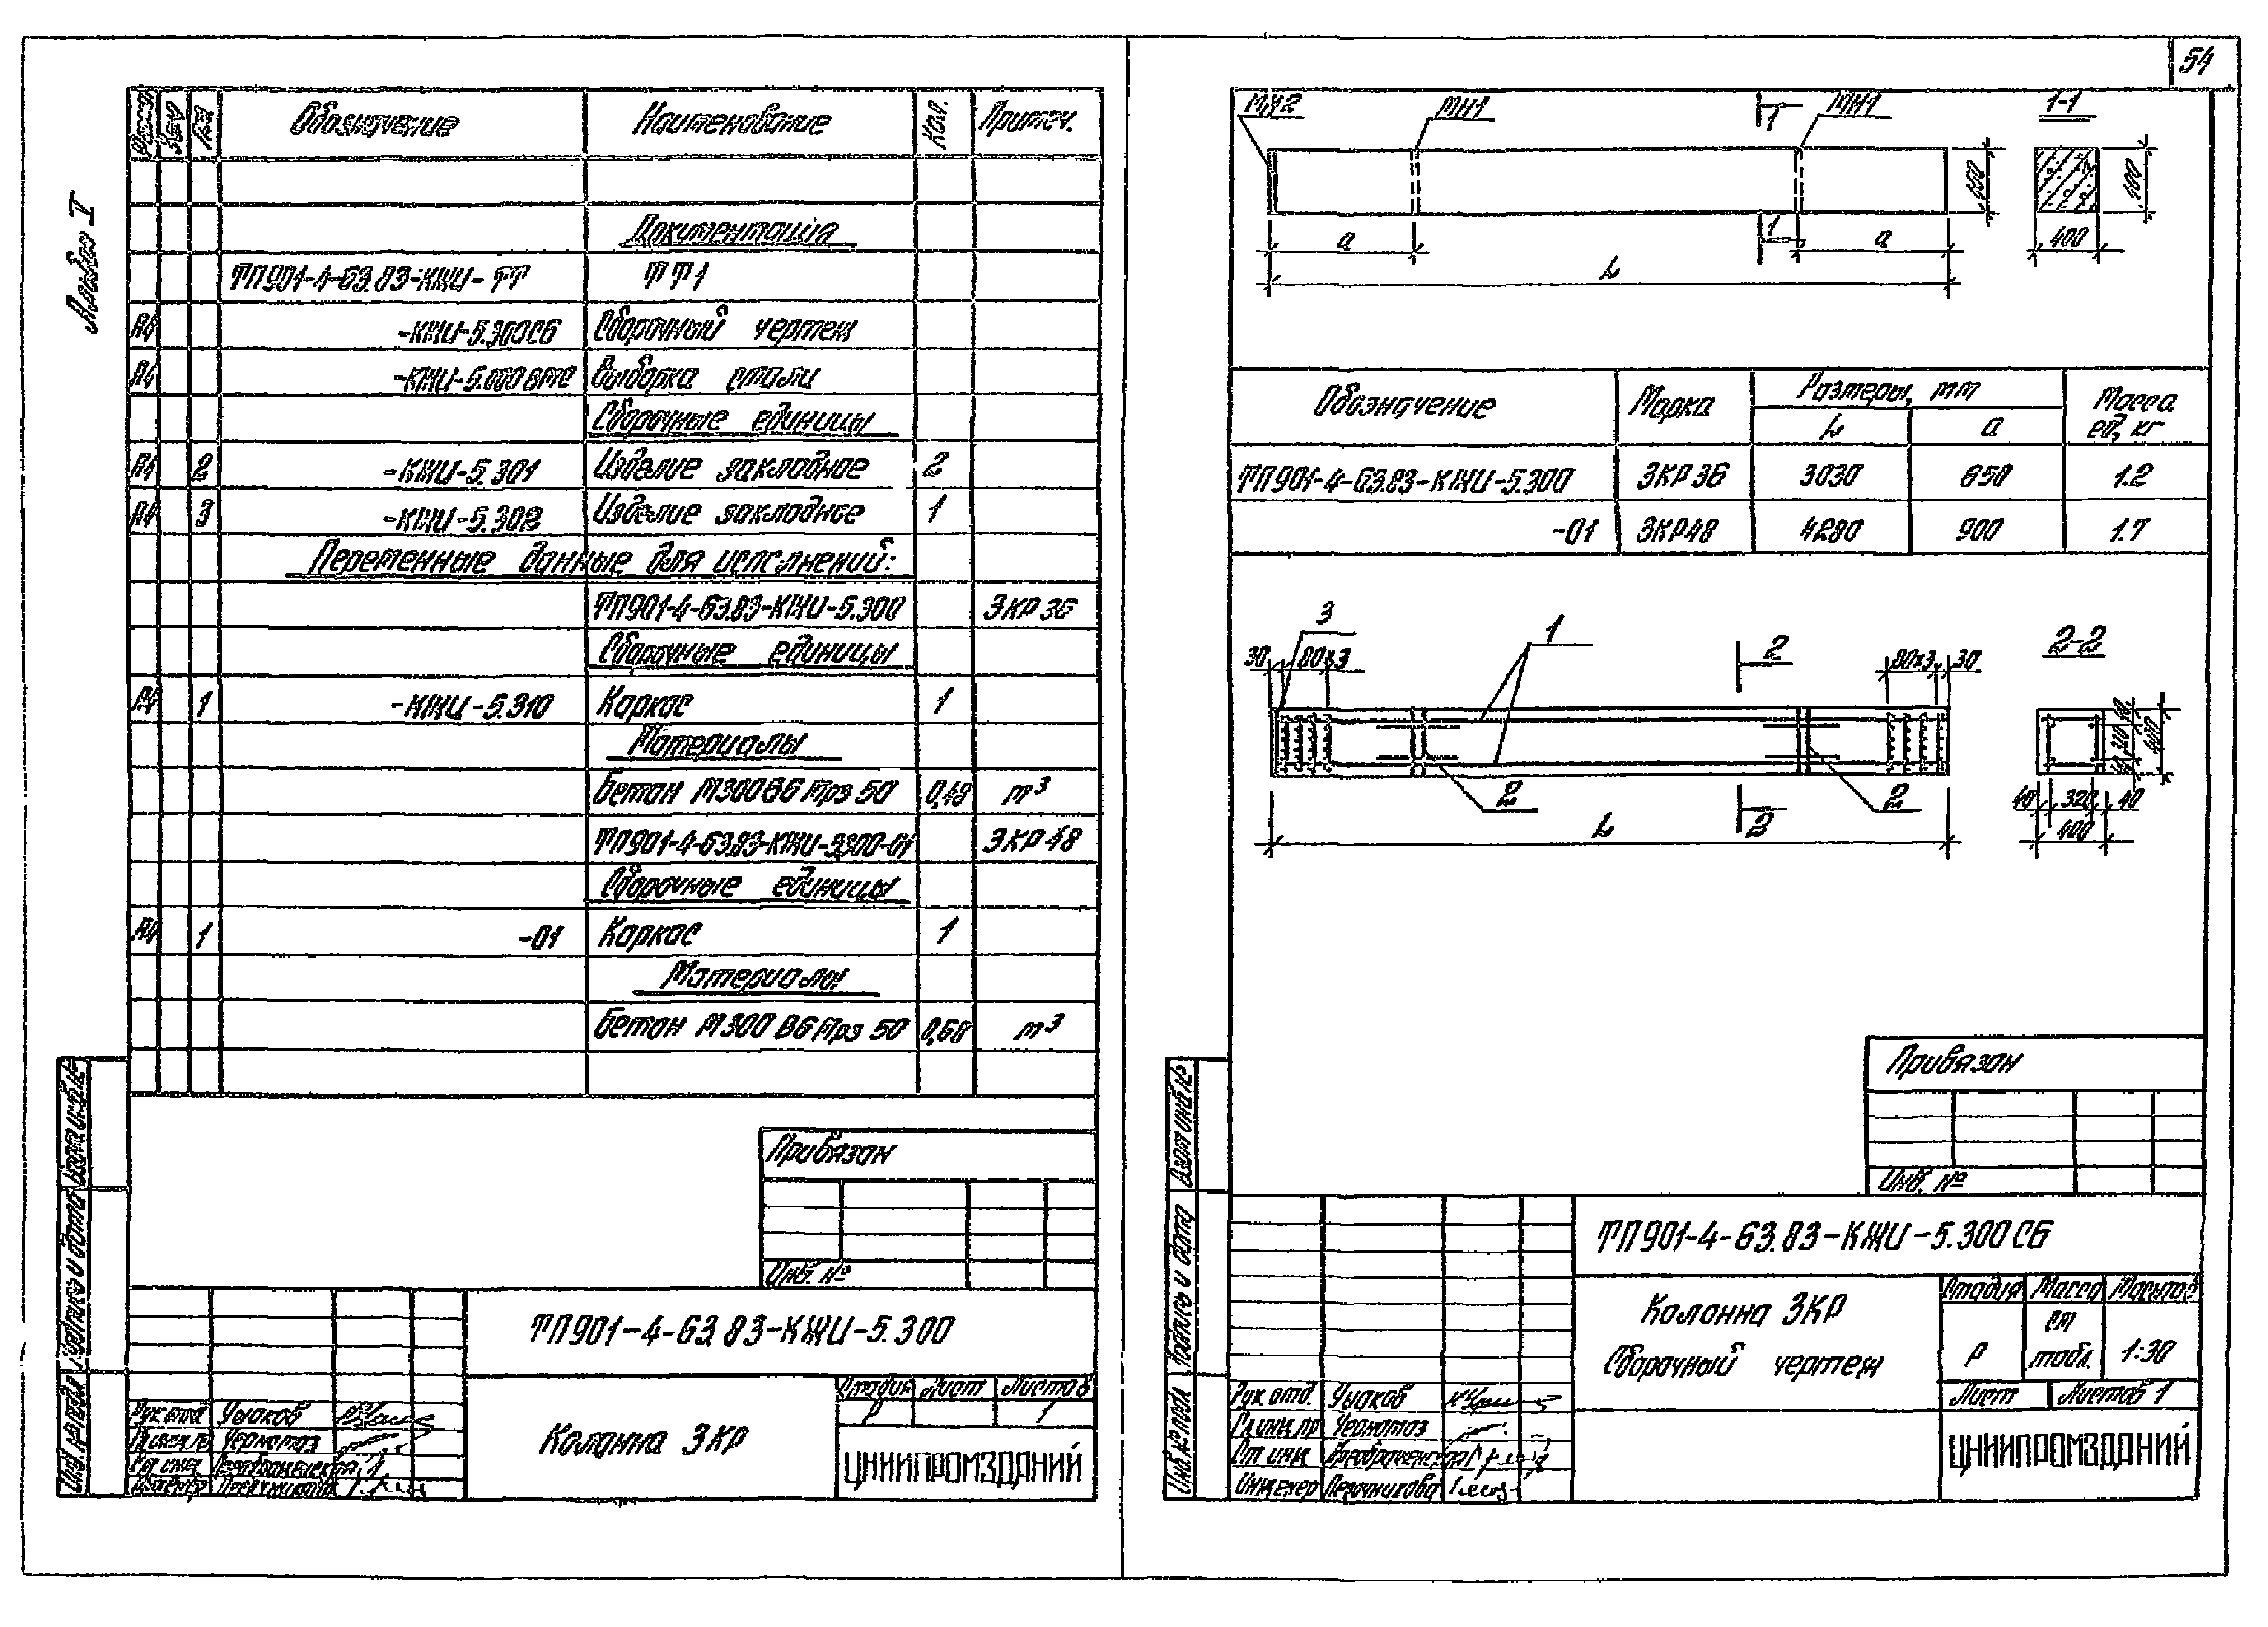 54
Альбом V
Формат Зона Поз. Обозначение Наименование Кол. Примеч.
Документация
ТП901-4-63.83-КЖИ-ТТ ТТ1
А4 -КЖИ-5.300СБ Сборочный чертеж
А4 -КЖИ-5.000ВМС Выборка стали
Сборочные единицы
А4 2 -КЖИ-5.301 Изделие закладное 2
А4 3 -КЖИ-5.302 Изделие закладное 1
Переменные данные для исполнений:
ТП901-4-63.83-КЖИ-5.300 3КР36
Сборочные единицы
А4 1 -КЖИ-5.310 Каркас 1
Материалы
Бетон М300 В6 Мрз 50 0,48 м³
ТП901-4-63.83-КЖИ-5.300-01 3КР48
Сборочные единицы
А4 1 -01 Каркас 1
Материалы
Бетон М300 В6 Мрз 50 0,68 м³
Привязан
Инв. №
ТП901-4-63.83-КЖИ-5.300
Колонна 3КР
Стадия Лист Листов
Р 1
ЦНИИПРОМЗДАНИЙ
Рук.отд. Ушаков
Инв.№ подл. Подпись и дата Взам.инв.№
МН2 МН1 1 МН1 1-1
400 400
а 1 а 400
L
Обозначение Марка Размеры, мм Масса ед, кг
L а
ТП901-4-63.83-КЖИ-5.300 3КР36 3030 650 1.2
-01 3КР48 4280 900 1.7
3 1 2 2-2
30 80х3 80х3 30
40 320 40 400
2 2 40 320 40
L 2 400
Привязан
Инв. №
ТП901-4-63.83-КЖИ-5.300СБ
Колонна 3КР
Сборочный чертеж
Стадия Масса Масштаб
Р см табл. 1:30
Лист Листов 1
ЦНИИПРОМЗДАНИЙ
Рук.отд. Ушаков
Инженер
Инв.№ подл. Подпись и дата Взам.инв.№